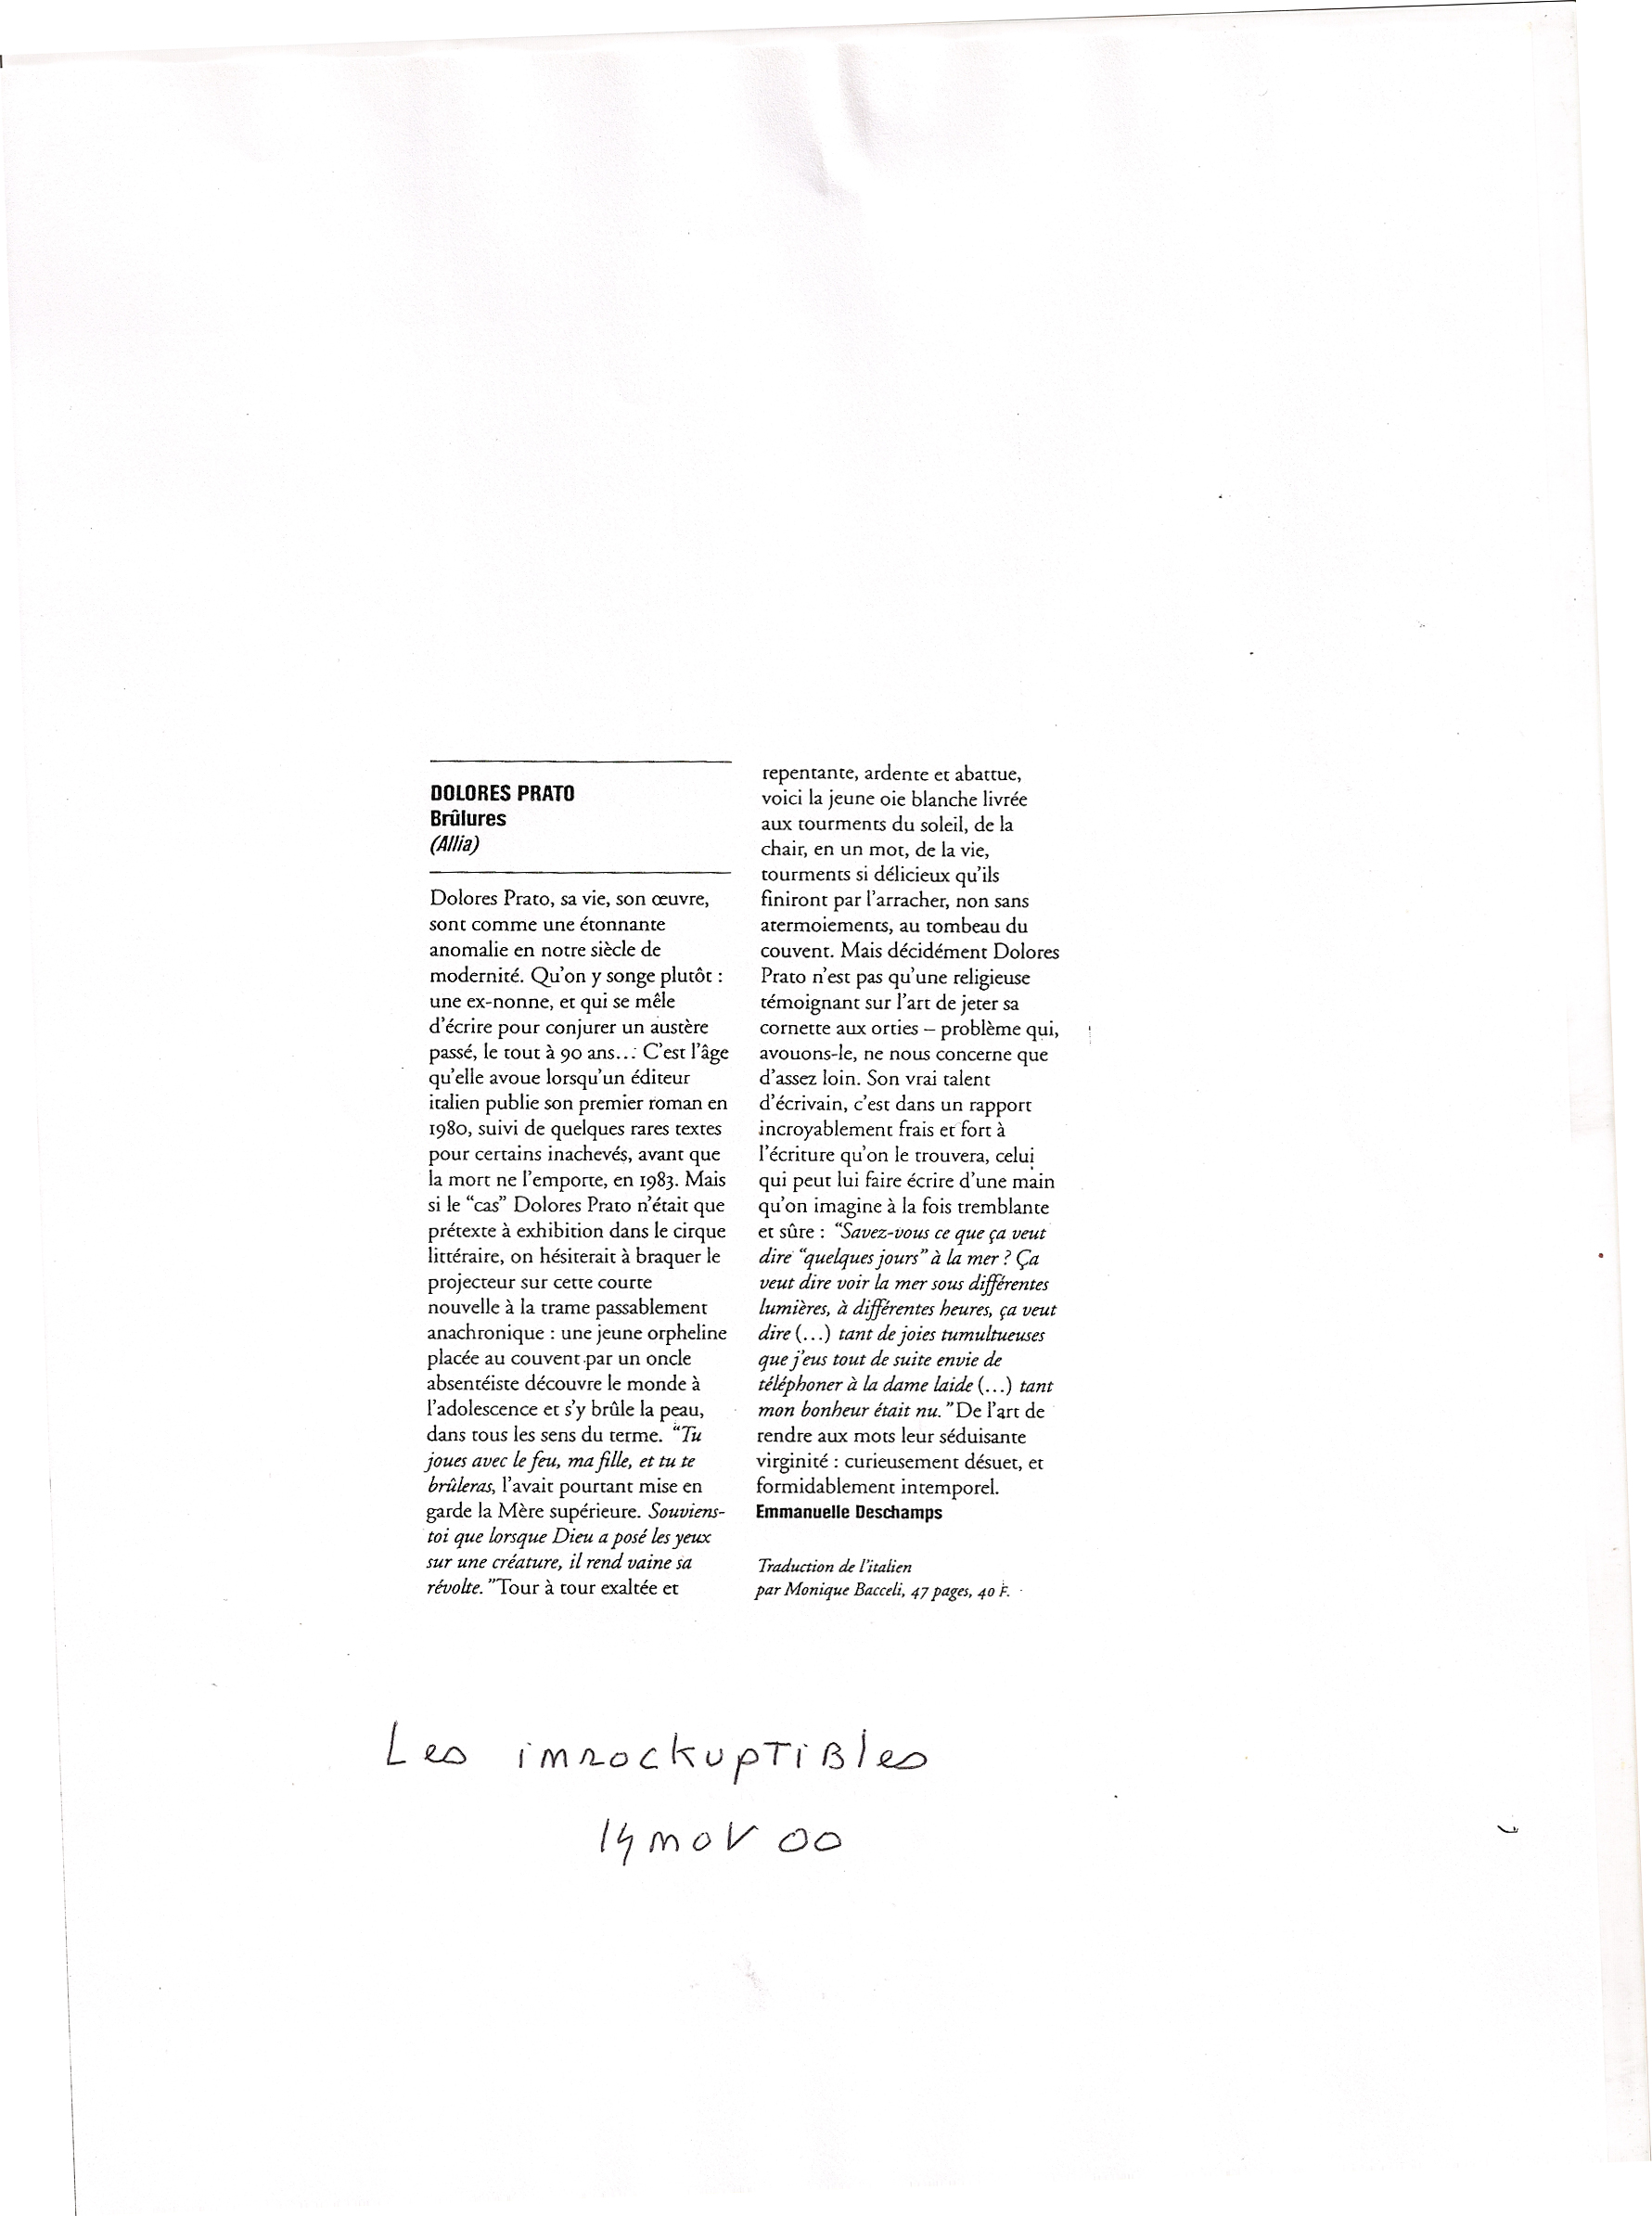 DOLORES PRATO
Brûlures
(Allia)
Dolores Prato, sa vie, son œuvre,
sont comme une étonnante
anomalie en notre siècle de
modernité. Qu'on y songe plutôt :
une ex-nonne, et qui se mêle
d'écrire pour conjurer un austère
passé, le tout à 90 ans... C'est l'âge
qu'elle avoue lorsqu'un éditeur
italien publie son premier roman en
1980, suivi de quelques rares textes
pour certains inachevés, avant que
la mort ne l'emporte, en 1983. Mais
si le “cas” Dolores Prato n'était que
prétexte à exhibition dans le cirque
littéraire, on hésiterait à braquer le
projecteur sur cette courte
nouvelle à la trame passablement
anachronique : une jeune orpheline
placée au couvent par un oncle
absentéiste découvre le monde à
l'adolescence et s'y brûle la peau,
dans tous les sens du terme. “Tu
joues avec le feu, ma fille, et tu te
brûleras, l'avait pourtant mise en
garde la Mère supérieure. Souviens-
toi que lorsque Dieu a posé les yeux
sur une créature, il rend vaine sa
révolte.” Tour à tour exaltée et
repentante, ardente et abattue,
voici la jeune oie blanche livrée
aux tourments du soleil, de la
chair, en un mot, de la vie,
tourments si délicieux qu'ils
finiront par l'arracher, non sans
atermoiements, au tombeau du
couvent. Mais décidément Dolores
Prato n'est pas qu'une religieuse
témoignant sur l'art de jeter sa
cornette aux orties – problème qui,
avouons-le, ne nous concerne que
d'assez loin. Son vrai talent
d'écrivain, c'est dans un rapport
incroyablement frais et fort à
l'écriture qu'on le trouvera, celui
qui peut lui faire écrire d'une main
qu'on imagine à la fois tremblante
et sûre : “Savez-vous ce que ça veut
dire “quelques jours” à la mer ? Ça
veut dire voir la mer sous différentes
lumières, à différentes heures, ça veut
dire (...) tant de joies tumultueuses
que j'eus tout de suite envie de
téléphoner à la dame laide (...) tant
mon bonheur était nu.” De l'art de
rendre aux mots leur séduisante
virginité : curieusement désuet, et
formidablement intemporel.
Emmanuelle Deschamps
Traduction de l'italien
par Monique Bacceli, 47 pages, 40 F.
Les inrockuptibles
14 nov 00